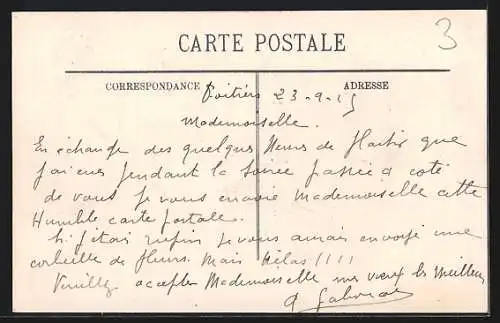 3
CARTE POSTALE
CORRESPONDANCE
ADRESSE
Poitiers 23-9-15
Mademoiselle.
En échange des quelques heures de plaisir que
j'ai eues pendant la soirée passée à coté
de vous je vous envoie Mademoiselle cette
Humble carte postale.
Si j'étais je vous aurais envoyé une
corbeille de fleurs. Mais Hélas!!!!
Veuillez accepter Mademoiselle mes vœux les meilleurs